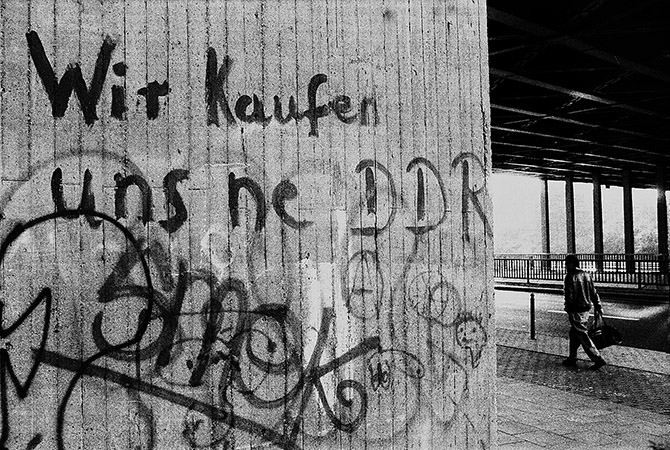 Wir Kaufen
uns ne DDR